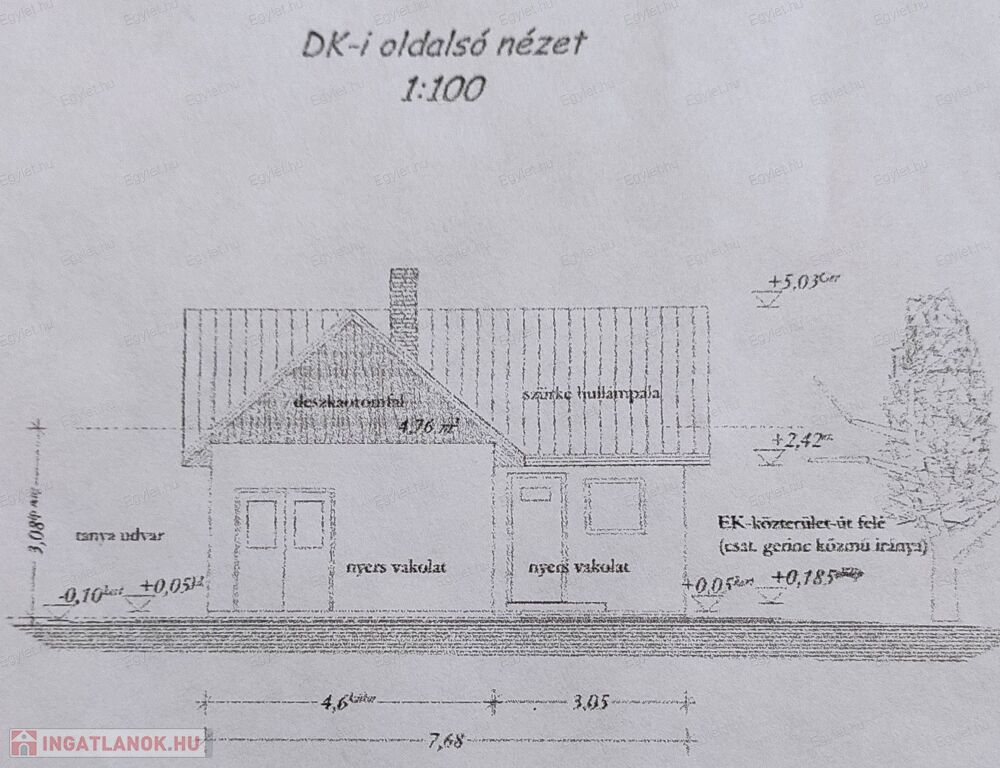 DK-i oldalsó nézet
1:100
+5,03
deszkaoromfal
szürke hullámpala
4,76 m²
+2,42
3,08
tanya udvar
EK-közterület-út felé
(csat. gerinc közmű iránya)
nyers vakolat
nyers vakolat
-0,10
+0,05
+0,05
+0,185
4,6
3,05
7,68
INGATLANOK.HU
Egylet.hu